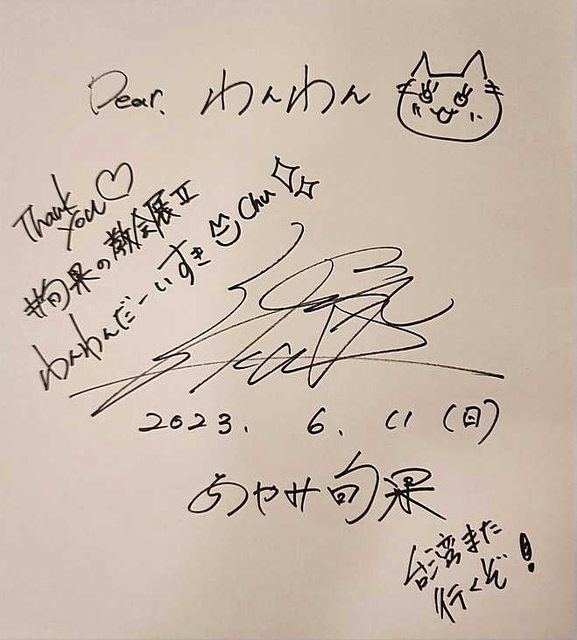 Dear. わんわん
Thank
you♡
#旬果の散会展Ⅱ
わんわんだーいすき Chu
2023. 6. 11 (日)
あやみ旬果
台湾また
行くぞ!